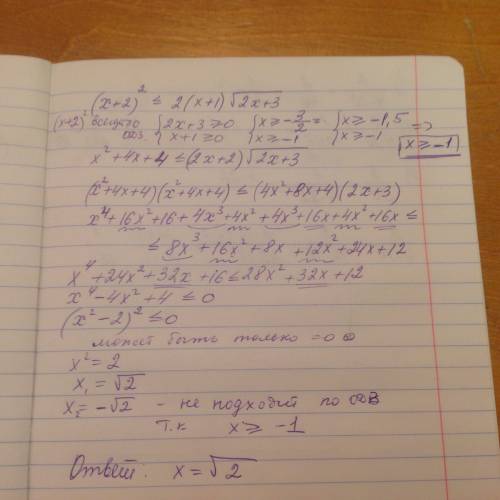 (x+2)² ≤ 2(x+1)√2x+3
(x+2)² {2x+3≥0 {x≥-3/2 = {x≥-1,5 =>
{x+1≥0 {x≥-1 {x≥-1 x≥-1
x²+4x+4 ≤ (2x+2)√2x+3
(x²+4x+4)(x²+4x+4) ≤ (4x²+8x+4)(2x+3)
x⁴+16x²+16+4x³+4x²+4x³+16x+4x²+16x ≤
≤ 8x³+16x²+8x+12x²+24x+12
x⁴+24x²+32x+16 ≤ 28x²+32x+12
x⁴-4x²+4 ≤ 0
(x²-2)² ≤ 0
может быть только =0
x²=2
x₁=√2
x₂=-√2 - не подходит по
т.к x≥-1
Ответ: x=√2